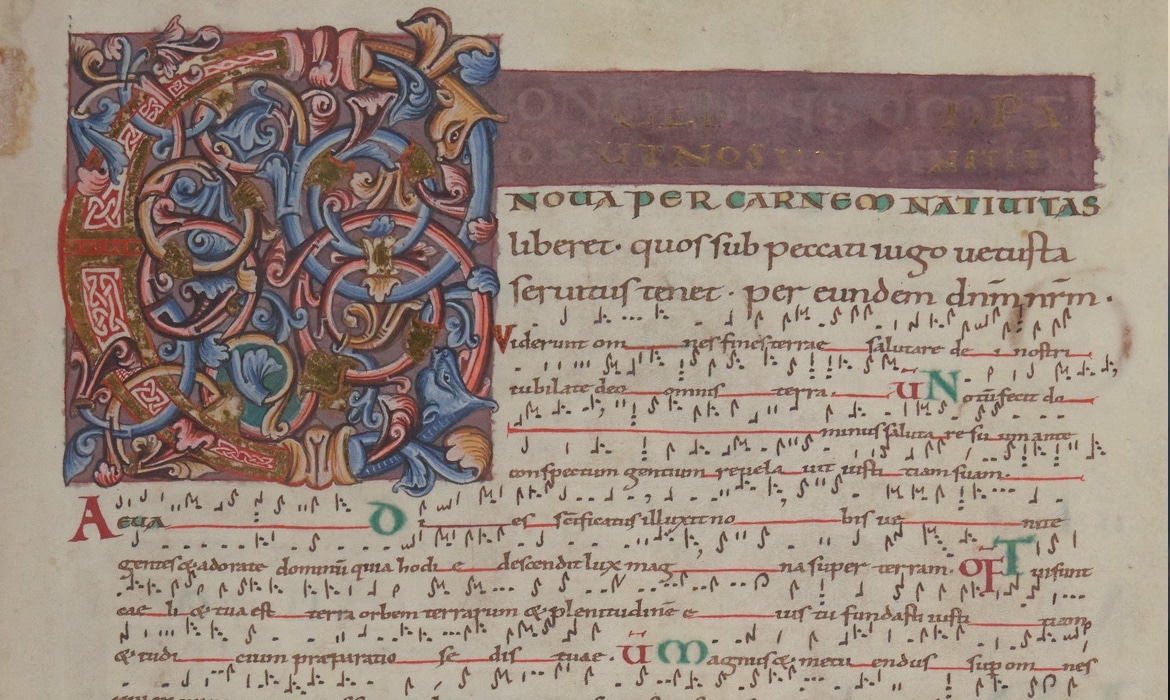 NOUA PER CARNEM NATIUITAS
liberet · quos sub peccati iugo uetusta
seruitus tenet · per eundem dnm nrm ·
Viderunt om nes fines terrae salutare de i nostri
iubilate deo omnis terra. V Notu fecit do
minus saluta re su um ante
conspectum gentium reuela uit iusti tiam suam.
AEUIA Di es scificatus illuxit no bis ue nite
gentes & adorate dominu quia hodi e descendit lux mag na super terram. OF Tui sunt
cae li & tua est terra orbem terrarum & plenitudine e ius tu fundasti iusti tiam
& iudi cium praeparatio se dis tuae. V Magnus & metu endus sup om nes